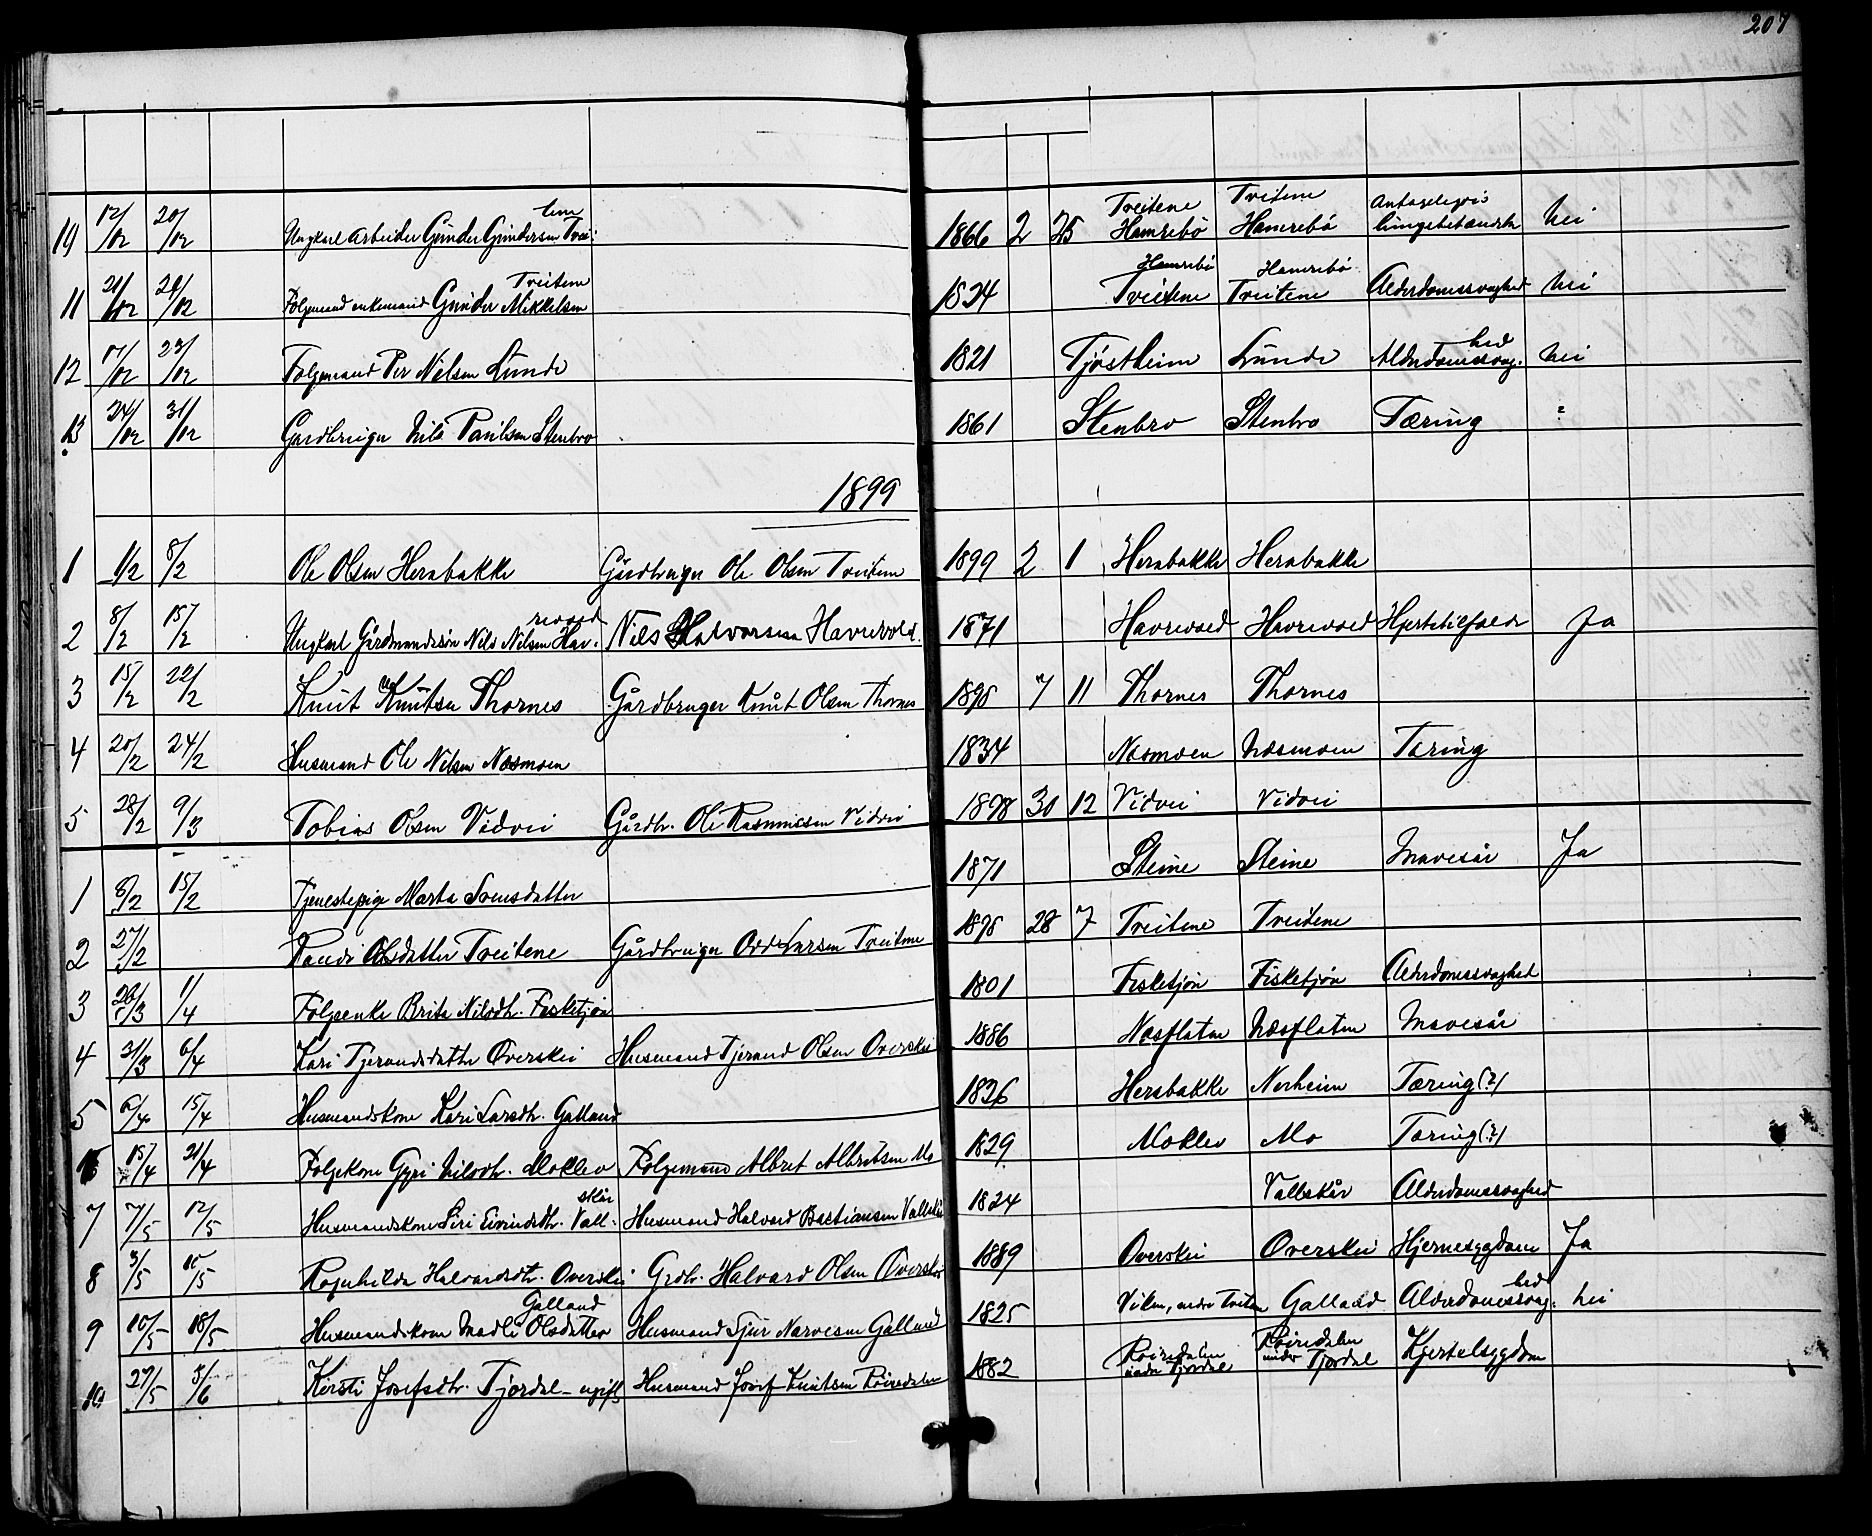 207
19 12/12 20/12 Ungkarl Arbeider Gunder Gundersen Trei- tene 1866 2 25 Treitene Hamrebø Treitene Hamrebø Antagelgvis lungebetændelse Nei
11 21/12 28/12 Folgemand enkemand Gunder Mikkelsen Treitene 1824 Hamrebø Treitene Hamrebø Treitene Alderdomssvaghed Nei
12 17/12 23/12 Folgemand Per Nilsen Lunde 1821 Tjøstheim Lunde Alderdomssvag- hed Nei
13 24/12 31/12 Gardbruger Nils Paulsen Stenbro 1861 Stenbro Stenbro Tæring "
1899
1 1/2 8/2 Ole Olsen Herabakke Gårdbruger Ole Olsen Treitene 1899 2 1 Herabakke Herabakke
2 8/2 15/2 Ungkarl Gårdmandssøn Nils Nilsen Hav- revoed Nils Halvorsen Havrevold 1871 Havrevoed Havrevoed Hjertetilfælde Ja
3 15/2 22/2 Knut Knutsen Thornes Gårdbruger Knut Olsen Thornes 1898 7 11 Thornes Thornes
4 20/2 24/2 Husmand Ole Nilsen Næsmoen 1834 Næsmoen Næsmoen Tæring
5 28/2 9/3 Tobias Olsen Vidvei Gårdbr. Ole Rasmussen Vidvei 1898 30 12 Vidvei Vidvei
1 8/2 15/2 Tjenestepige Marta Svensdatter 1871 Steine Steine Mavesår Ja
2 27/2 Randi Olsdatter Treitene Gårdbruger Odd Larsen Treitene 1898 28 7 Treitene Treitene
3 26/3 1/4 Folgeenke Brita Nilsdtr. Fisketjøn 1801 Fisketjøn Fisketjøn Alderdomssvaghed
4 31/3 6/4 Kari Tjerandsdatter Overskei Husmand Tjerand Olsen Overskei 1886 Næsflaten Næsflaten Mavesår
5 6/4 15/4 Husmandskone Kari Larsdtr. Galland 1826 Herabakke Nerheim Tæring (?)
6 15/4 21/4 Folgekone Gyri Nilsdtr. Moklev Folgemand Albret Albretsen Mo 1829 Moklev Mo Tæring (?)
7 7/5 12/5 Husmandskone Siri Eivindsdtr. Vall- skår Husmand Halvard Bastiansen Vallskår 1824 Vallskår Alderdomssvaghed
8 3/5 10/5 Ragnhilda Halvardsdtr. Overskei Grdbr. Halvard Olsen Overskei 1889 Overskei Overskei Hjernesygdom Ja
9 10/5 18/5 Husmandskone Madli Olsdatter Galland Husmand Sjur Narvesen Galland 1825 Viken, nedre Treiten Galland Alderdomssvag- hed Nei
10 27/5 5/6 Kirsti Josefsdtr. Tjordal - ugift Husmand Josef Knutsen Røiredalen 1882 Røiredalen under Tjordal Røiredalen under Tjordal Kjertelsygdom